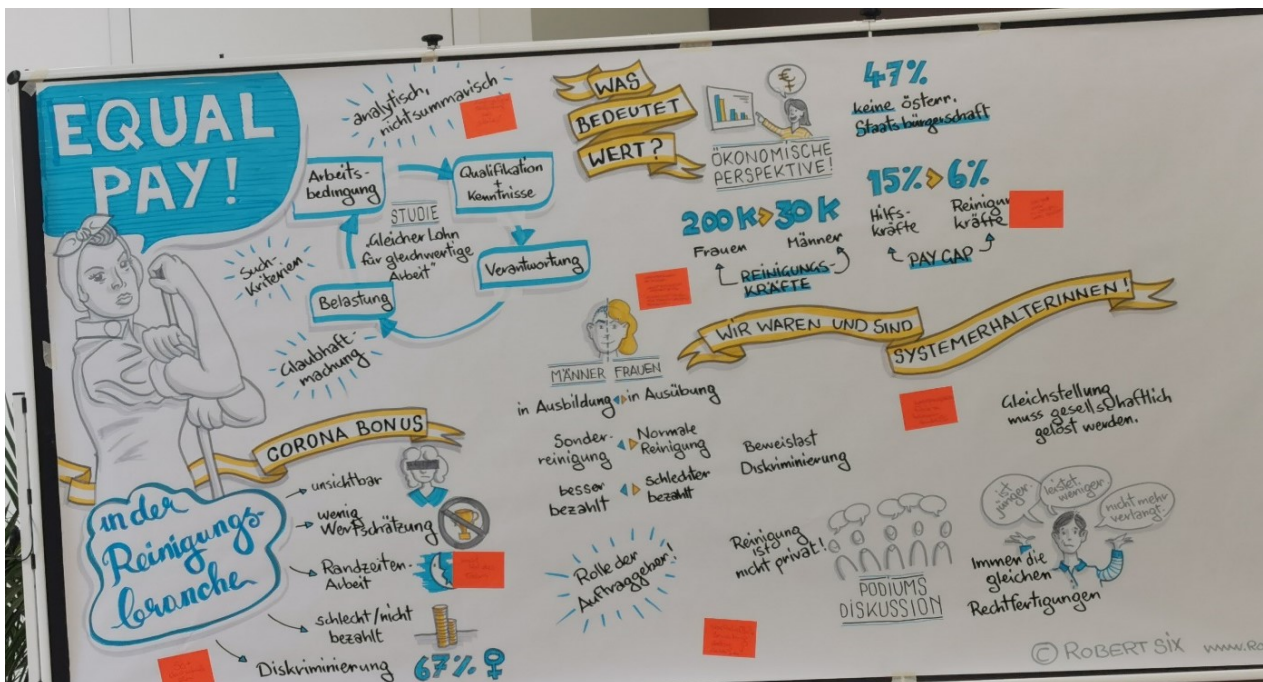 EQUAL
PAY!
in der
Reinigungs-
branche
analytisch,
nicht summarisch
Arbeits-
bedingung
Qualifikation
+
Kenntnisse
STUDIE
„Gleicher Lohn
für gleichwertige
Arbeit"
Verantwortung
Belastung
Such-
Kriterien
Glaubhaft-
machung
CORONA BONUS
unsichtbar
wenig
Wertschätzung
Randzeiten-
Arbeit
schlecht/nicht
bezahlt
Diskriminierung 67% ♀
WAS
BEDEUTET
WERT?
€
ÖKONOMISCHE
PERSPEKTIVE!
47%
keine österr.
Staatsbürgerschaft
200 K > 30 K
Frauen Männer
REINIGUNGS-
KRÄFTE
15% > 6%
Hilfs-
kräfte
Reinigun
kräfte
PAY GAP
WIR WAREN UND SIND
SYSTEMERHALTERINNEN!
MÄNNER FRAUEN
in Ausbildung in Ausübung
Sonder-
reinigung
Normale
Reinigung
besser
bezahlt
schlechter
bezahlt
Beweislast
Diskriminierung
Gleichstellung
muss gesellschaftlich
gelöst werden.
Rolle der
Auftraggeber!
Reinigung
ist
nicht privat!
PODIUMS
DISKUSSION
ist
jünger.
leistet
weniger.
nicht mehr
verlangt.
Immer die
gleichen
Rechtfertigungen
© ROBERT SIX www.Ro